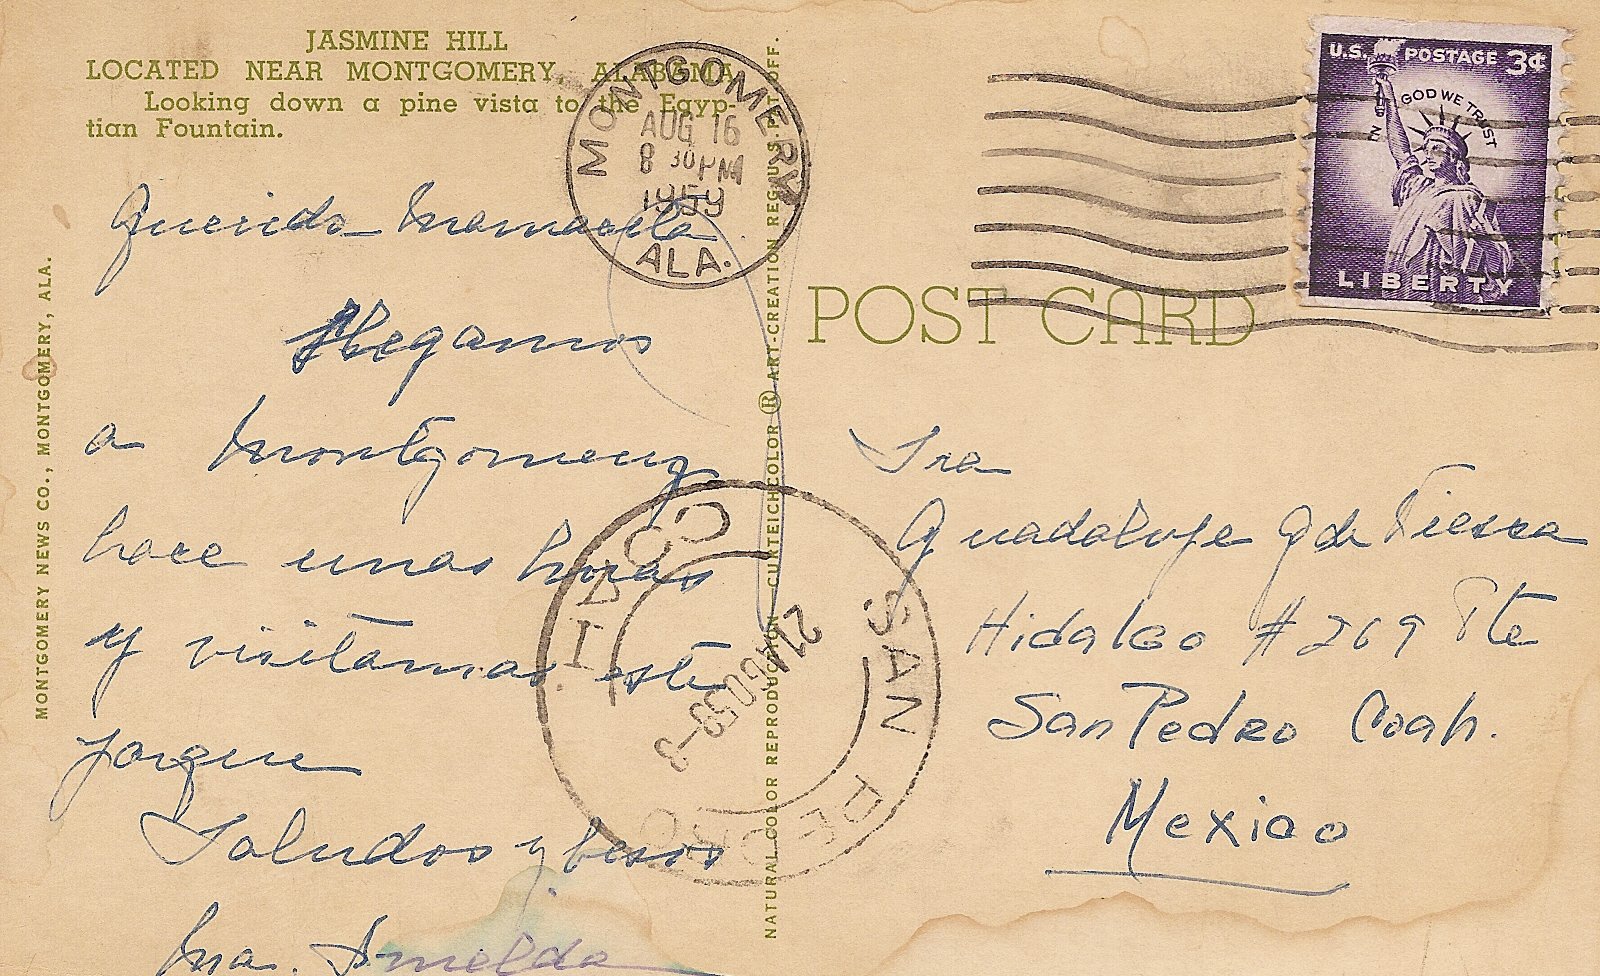 JASMINE HILL
LOCATED NEAR MONTGOMERY, ALABAMA
Looking down a pine vista to the Egyp-
tian Fountain.
MONTGOMERY
AUG 16
8 30 PM
1959
ALA.
U.S. POSTAGE 3¢
IN GOD WE TRUST
LIBERTY
POST CARD
MONTGOMERY NEWS CO., MONTGOMERY, ALA.
NATURAL COLOR REPRODUCTION CURTEICHCOLOR ® ART-CREATION REG. U.S. PAT. OFF.
Querida Mamacita
Llegamos
a Montgomery
hace unas horas
y visitamos este
parque
Saludos y besos
Ma. Imelda
Sra
Guadalupe G de Tierra
Hidalgo # 269 Pte
San Pedro Coah.
Mexico
SAN PEDRO
COA